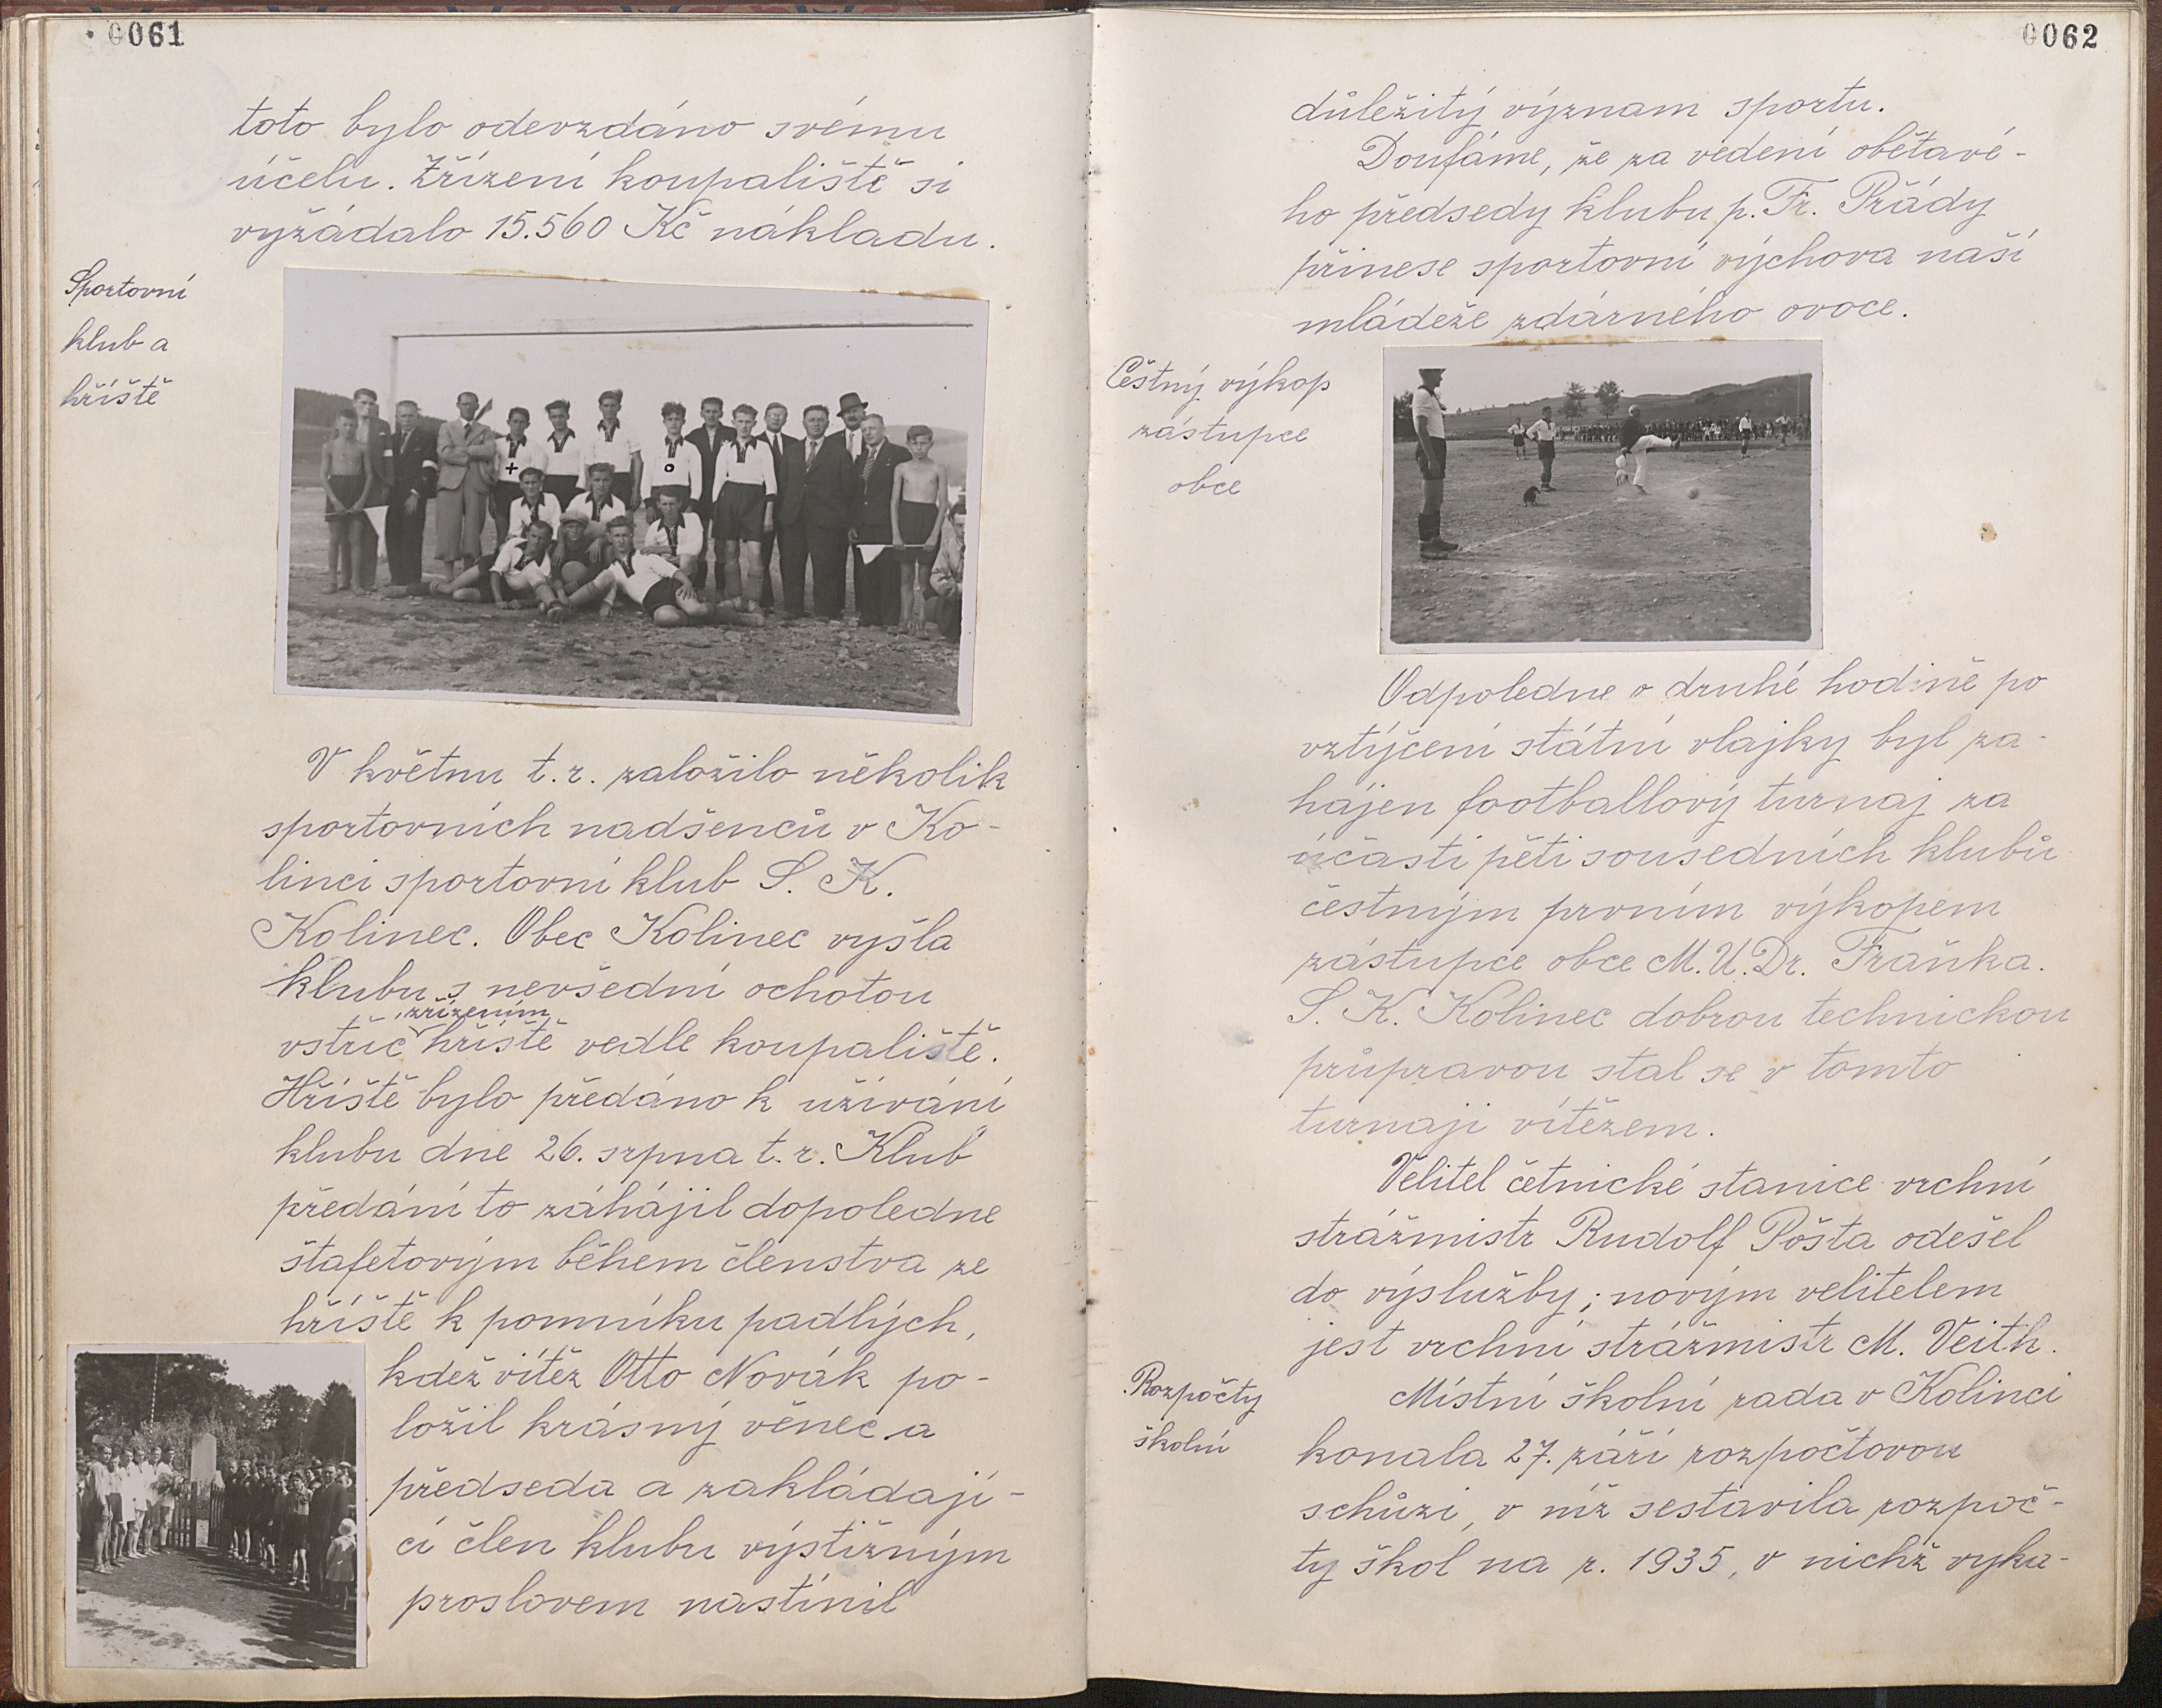 0061
toto bylo odevzdáno svému
účelu. Zřízení koupaliště si
vyžádalo 15.560 Kč nákladu.
Sportovní
klub a
hřiště
V květnu t.r. založilo několik
sportovních nadšenců v Ko-
linci sportovní klub S. K.
Kolinec. Obec Kolinec vyšla
klubu s nevšední ochotou
zřízením
vstříc hřiště vedle koupaliště.
Hřiště bylo předáno k užívání
klubu dne 26. srpna t.r. Klub
předání to záhájil dopoledne
štafetovým během členstva ze
hřiště k pomníku padlých,
kdež vítěz Otto Novák po-
ložil krásný věnec a
předseda a zakládají-
cí člen klubu výstižným
proslovem nastínil
0062
důležitý význam sportu.
Doufáme, že za vedení obětavé-
ho předsedy klubu p. Fr. Přády
přinese sportovní výchova naší
mládeže zdárného ovoce.
Čestný výkop
zástupce
obce
Odpoledne o druhé hodině po
vztýčení státní vlajky byl za-
hájen footballový turnaj za
účasti pěti sousedních klubů
čestným prvním výkopem
zástupce obce M.U.Dr. Fraňka.
S. K. Kolinec dobrou technickou
průpravou stal se v tomto
turnaji vítězem.
Velitel četnické stanice vrchní
strážmistr Rudolf Pošta odešel
do výslužby; novým velitelem
jest vrchní strážmistr M. Veith.
Rozpočty
školní
Místní školní rada v Kolinci
konala 27. září rozpočtovou
schůzi, v níž sestavila rozpoč-
ty škol na r. 1935, v nichž vyka-